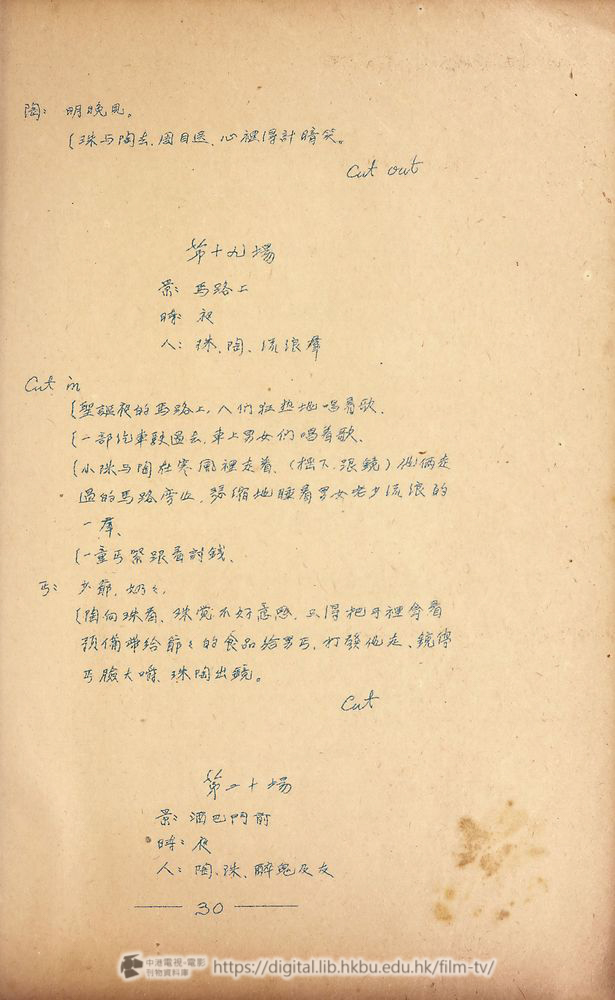 陶：明晚見。
（珠与陶去，周目送，心裡得計暗笑。
Cut out
第十九場
景：馬路上
時：夜
人：珠、陶、流浪羣
Cut in
（聖誕夜的馬路上，人們狂热地唱着歌、
（一部汽車駛過去，車上男女們唱着歌、
（小珠与陶在寒風裡走着、（摇下、跟鏡）他倆走
過的馬路旁边，踡缩地睡着男女老少流浪的
一羣、
（一童丐緊跟着討錢、
丐：少爺，奶々、
（陶向珠看，珠觉不好意思，只得把手裡拿着
預備带給爺々的食品给男丐，打發他走、鏡停
丐臉大嚼，珠陶出鏡。
Cut
第二十場
景：酒巴門前
時：夜
人：陶、珠、醉鬼及友
30
中港電視-電影
刊物資料庫
https://digital.lib.hkbu.edu.hk/film-tv/